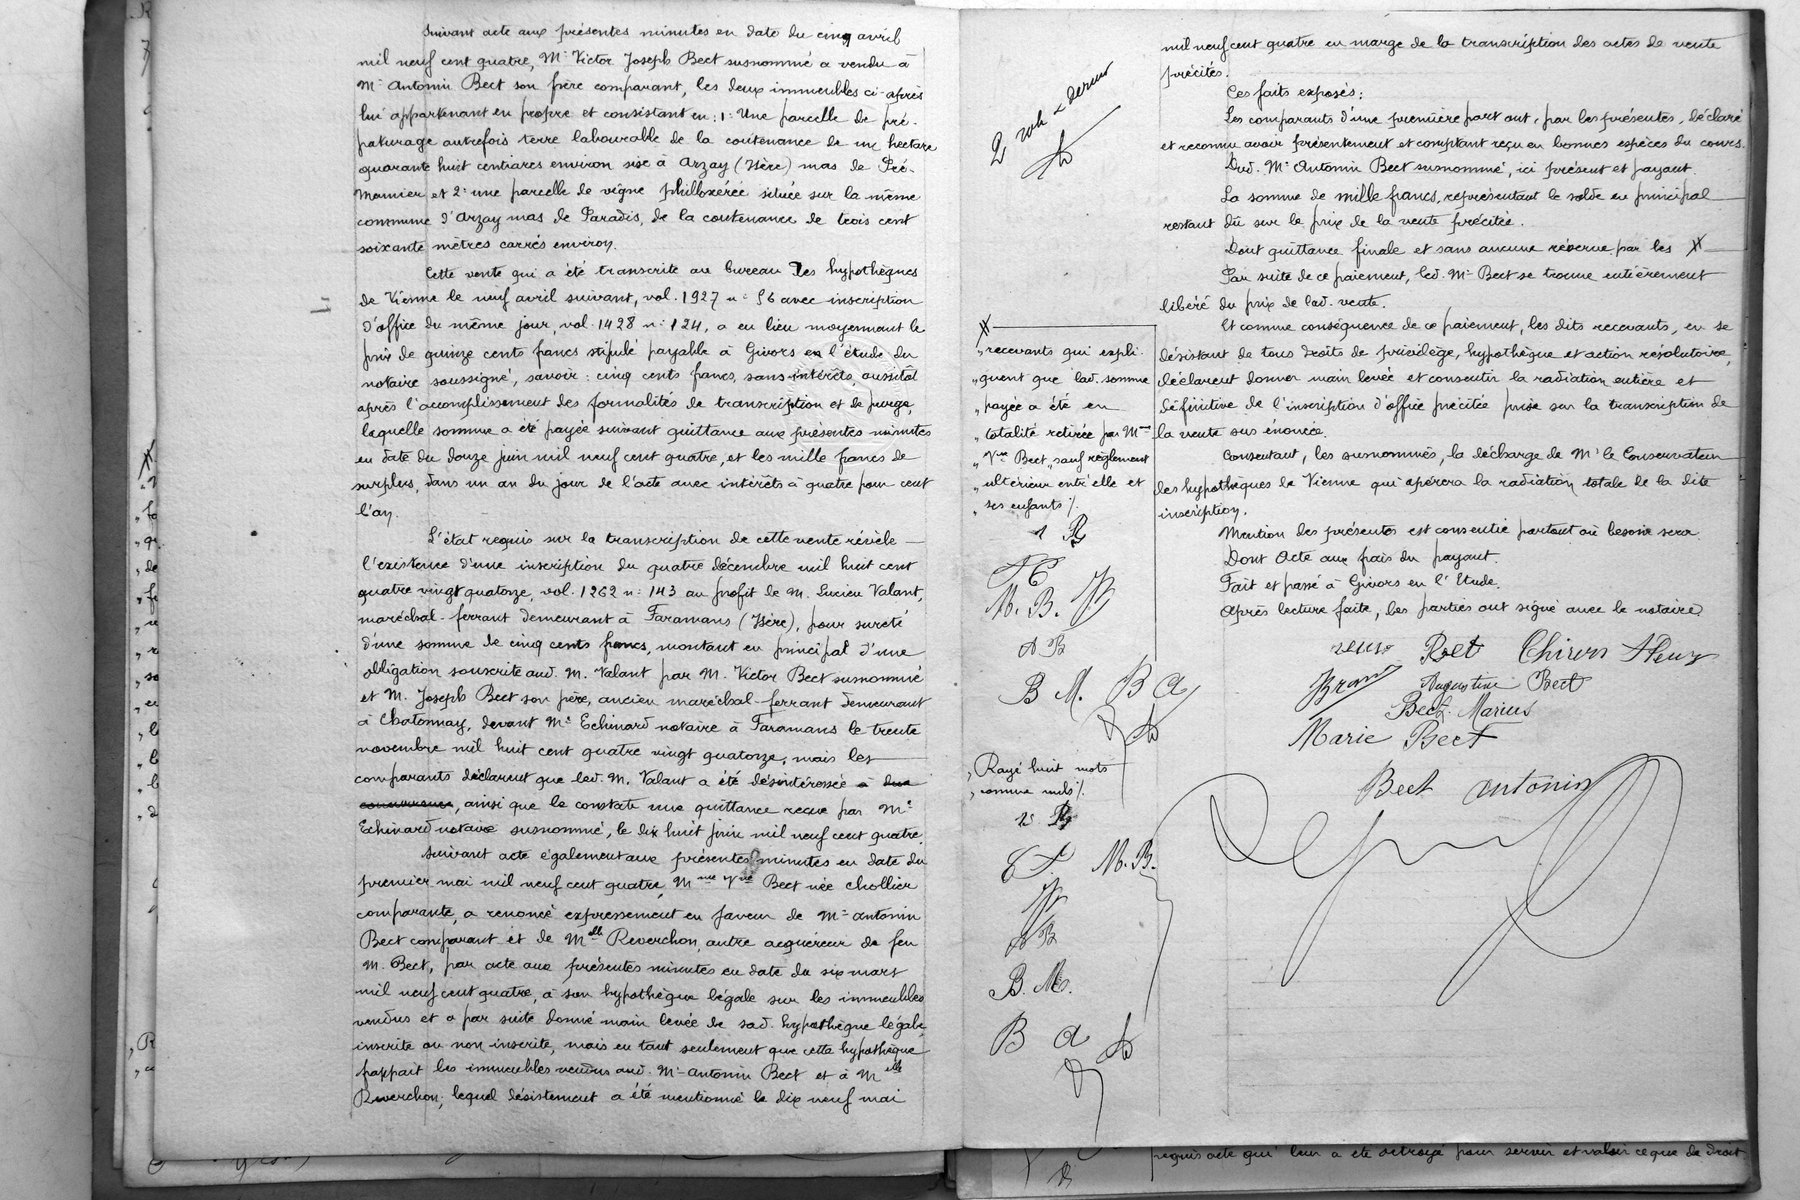 Suivant acte aux présentes minutes en date du cinq avril
mil neuf cent quatre, Mr Victor Joseph Bect susnommé a vendu à
Mr Antonin Bect son frère comparant, les deux immeubles ci-après
lui appartenant en propre et consistant en: 1: Une parcelle de pré-
paturage autrefois terre labourable de la contenance de un hectare
quarante huit centiares environ sise à Arzay (Isère) mas de Pré-
Mounier et 2: une parcelle de vigne philloxérée située sur la même
commune d'Arzay mas de Paradis, de la contenance de trois cent
soixante mètres carrés environ.
Cette vente qui a été transcrite au bureau des hypothèques
de Vienne le neuf avril suivant, vol. 1927 n: 56 avec inscription
d'office du même jour, vol. 1428 n: 124, a eu lieu moyennant le
prix de quinze cents francs stipulé payable à Givors en l'étude du
notaire soussigné, savoir: cinq cents francs, sans intérêts, aussitôt
après l'accomplissement des formalités de transcription et de purge,
laquelle somme a été payée suivant quittance aux présentes minutes
en date du douze juin mil neuf cent quatre, et les mille francs de
surplus, dans un an du jour de l'acte avec intérêts à quatre pour cent
l'an.
L'état requis sur la transcription de cette vente révèle
l'existence d'une inscription du quatre décembre mil huit cent
quatre vingt quatorze, vol. 1262 n: 143 au profit de M. Lucien Valant,
maréchal-ferrant demeurant à Faramans (Isère), pour sureté
d'une somme de cinq cents francs, montant en principal d'une
obligation souscrite aud. M. Valant par M. Victor Bect susnommé
et M. Joseph Bect son père, ancien maréchal-ferrant demeurant
à Chatonnay, devant Me Echinard notaire à Faramans le trente
novembre mil huit cent quatre vingt quatorze, mais les
comparants déclarent que led. M. Valant a été désintéressé
, ainsi que le constate une quittance reçue par Me
Echinard notaire susnommé, le dix huit juin mil neuf cent quatre.
Suivant acte également aux présentes minutes en date du
premier mai mil neuf cent quatre, Mme Vve Bect née Chollier
comparante, a renoncé expressement en faveur de Mr Antonin
Bect comparant et de Mlle Reverchon, autre acquéreur de feu
M. Bect, par acte aux présentes minutes en date du six mars
mil neuf cent quatre, à son hypothèque légale sur les immeubles
vendus et a par suite donné main levée de sad. hypothèque légale,
inscrite ou non inscrite, mais en tant seulement que cette hypothèque
frappait les immeubles vendus aud. Mr Antonin Bect et à Mlle
Reverchon; lequel désistement a été mentionné le dix neuf mai
mil neuf cent quatre en marge de la transcription des actes de vente
précités.
Ces faits exposés:
Les comparants d'une première part ont, par les présentes, déclaré
et reconnu avoir présentement et comptant reçu en bonnes espèces du cours.
Dud. Mr Antonin Bect susnommé, ici présent et payant.
La somme de mille francs, représentant le solde en principal
restant dû sur le prix de la vente précitée.
Dont quittance finale et sans aucune réserve par les #
Par suite de ce paiement, led. Mr Bect se trouve entièrement
libéré du prix de lad. vente.
Et comme conséquence de ce paiement, les dits recevants, en se
désistant de tous droits de privilège, hypothèque et action résolutoire,
déclarent donner main levée et consentir la radiation entière et
définitive de l'inscription d'office précitée prise sur la transcription de
la vente sus énoncée.
Consentant, les susnommés, la décharge de Mr le Conservateur
des hypothèques de Vienne qui opérera la radiation totale de la dite
inscription.
Mention des présentes est consentie partout où besoin sera.
Dont Acte aux frais du payant.
Fait et passé à Givors en l'Etude.
Après lecture faite, les parties ont signé avec le notaire
#
recevants qui expli-
quent que lad. somme
payée a été en
totalité retirée par Mme
Vve Bect, sauf règlement
ultérieur entr'elle et
ses enfants /.
M. B.
B M. B A
Rayé huit mots
comme nuls /.
M. B.
B. M.
B A
veuve Bect
Augustine Bect
Bect Marius
Marie Bect
Bect Antonin
requis acte qui leur a été octroyé pour servir et valoir ce que de droit